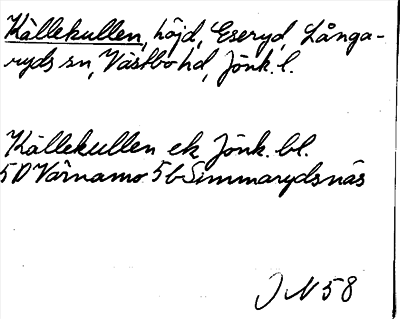 Källekullen, höjd, Eseryd, Långa-
ryds sn, Västbo hd, Jönk. l.
Källekullen ek Jönk. bl.
5D Värnamo 5b Simmarydsnäs
J N 58